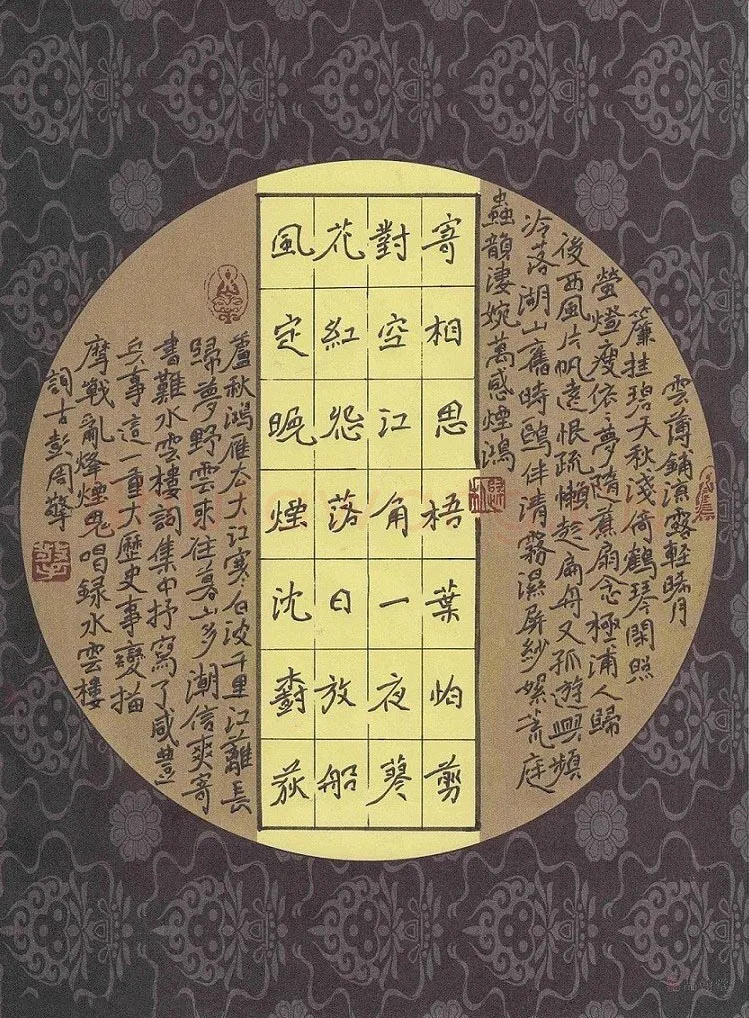 雲薄鋪涼露輕睇月
簾挂碧天秋淺倚鶴琴閑照
螢燈瘦依々夢隨蕉扇念極浦人歸
後西風片帆遠恨疏懶趁扁舟又孤遊興頻
冷落湖山舊時鷗伴清霧濕屏紗螺荒庭
蟲韻淒婉萬感煙鴻
寄相思梧葉怕剪
對空江角一夜蓼
花紅怨落日放船
風定晚煙沈對荻
蘆秋鴻雁去大江寒白波千里江蘺長
歸夢野雲來往暮山多潮信爽寄
書難水雲樓詞集中抒寫了咸豊
兵事這一重大歷史事變描
摩戰亂烽煙鬼唱録水雲樓
詞古彭周擎